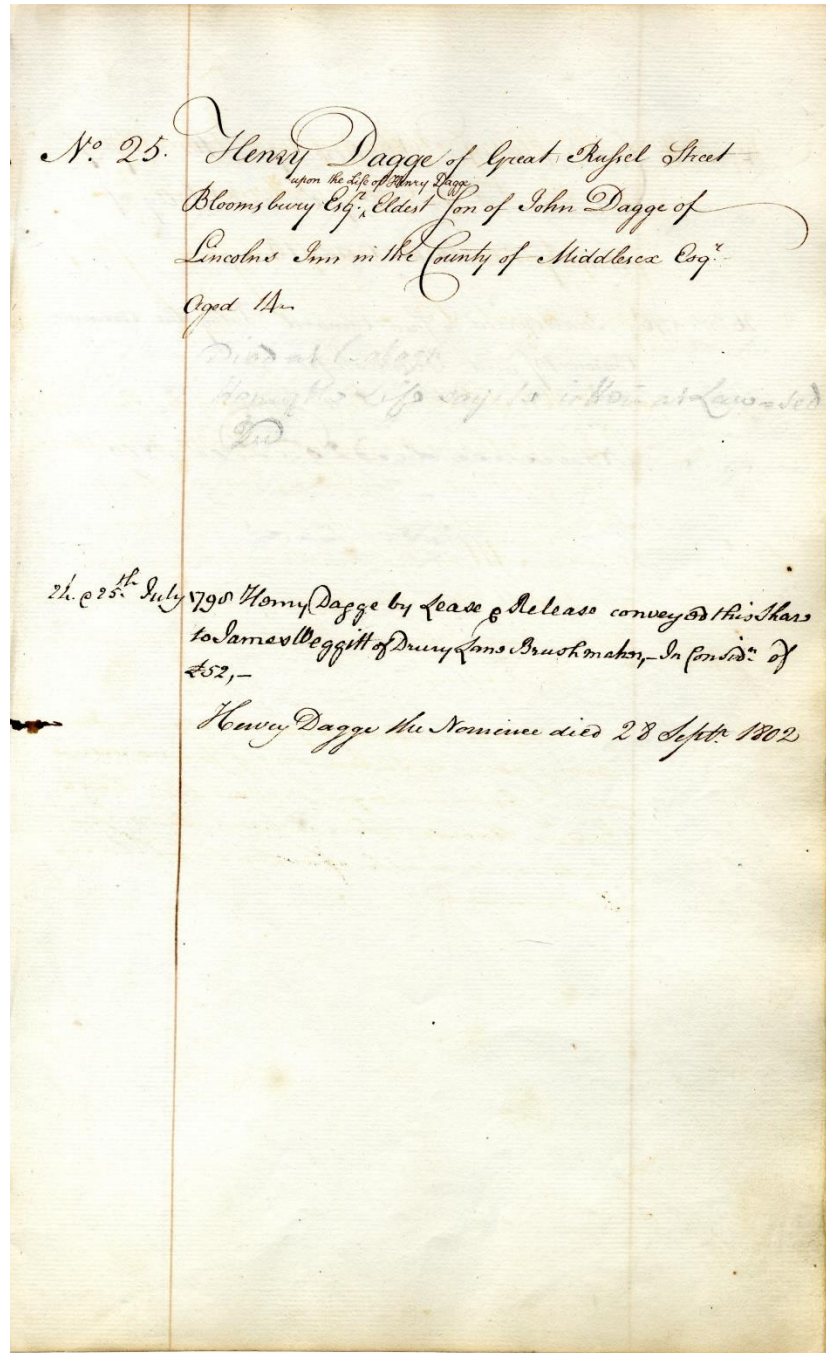 No. 25. Henry Dagge of Great Russel Street
upon the Life of Henry Dagge
Bloomsbury Esqr. ^ Eldest Son of John Dagge of
Lincolns Inn in the County of Middlesex Esqr.
Aged 14
Died at
Henry the Life says he is Heir at Law
24. & 25th. July 1798 Henry Dagge by Lease & Release conveyed this Share
to James Weggitt of Drury Lane Brushmaker, – In Considn. of
£52, –
Henry Dagge the Nominee died 28 Septr. 1802